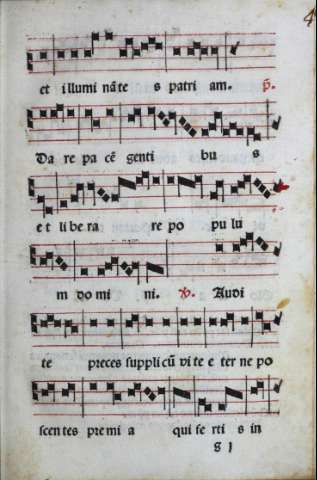 4
et illumināte s patri am. p̄.
Da re pa cē genti bu s
et li be ra re po pu lu
m do mi ni. ℣. Audi
te preces supplicū vi te e ter ne po
scen tes pre mi a qui fe rt i s in
g 1